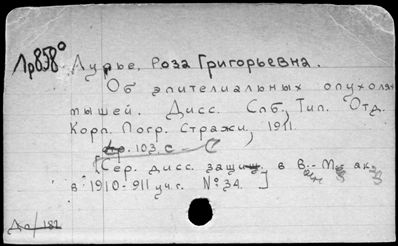 Лр858°
Лурье, Роза Григорьевна.
Об эпителиальных опухолях
мышей. Дисс. Спб, Тип. Отд.
Корп. Погр. Стражи, 1911.
103 с
[Сер. дисс. защищ. в В.-М. ак.
в 1910-911 уч. г. № 34.]
Дп/182